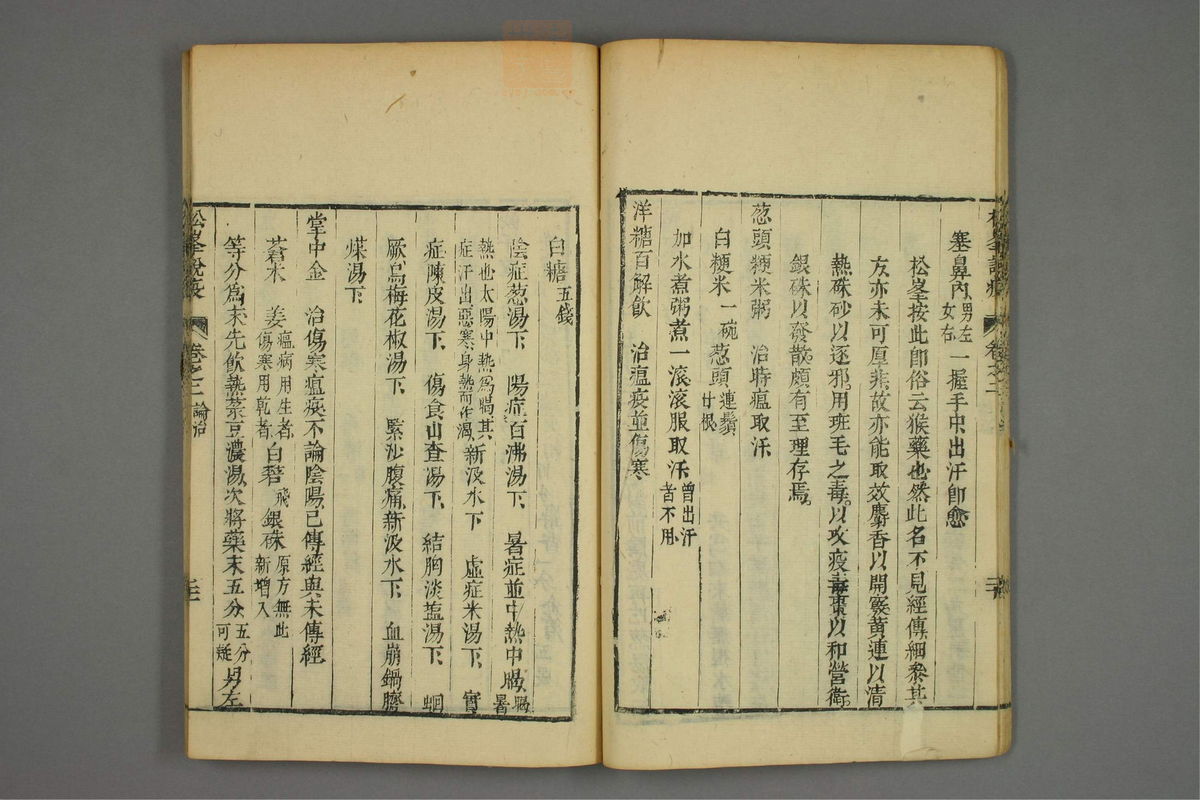 塞鼻內男左女右一握手中出汗卽愈
松峯按此卽俗云猴藥也然此名不見經傳細叅其
方亦未可厚非故亦能取效麝香以開竅黃連以清
熱硃砂以逐邪用班毛之毒以攻疫毒棗以和營衛
銀硃以發散頗有至理存焉
葱頭粳米粥 治時瘟取汗
白粳米一碗葱頭連鬚廿根
加水煮粥煮一滾滾服取汗曾出汗者不用
洋糖百解飲 治瘟疫並傷寒
白糖五錢
陰症葱湯下 陽症百沸湯下 暑症並中熱中暍暍暑
熱也太陽中熱爲暍其症汗出惡寒身熱而作渴新汲水下 虛症米湯下 實
症陳皮湯下 傷食山查湯下 結胸淡塩湯下 蛔
厥烏梅花椒湯下 緊沙腹痛新汲水下 血崩鍋臍
煤湯下
掌中金 治傷寒瘟疫不論陰陽已傳經與未傳經
蒼术 姜瘟病用生者傷寒用乾者白礬飛銀硃原方無此新增入
等分爲末先飲熱菉豆濃湯次將藥末五分五分可疑男左
松峯說疫 卷之二 論治